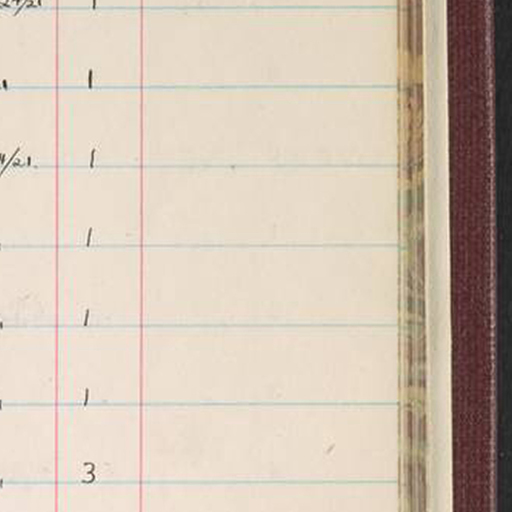 1
" 1
/21. 1
" 1
" 1
" 1
" 3